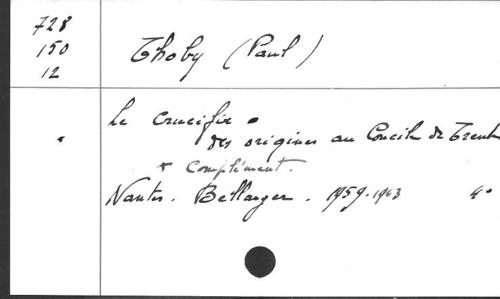 728
150
12
Thoby (Paul)
Le Crucifix
des origines au Concile de Trente
+ Complément.
Nantes. Bellanger. 1959-1963 4°